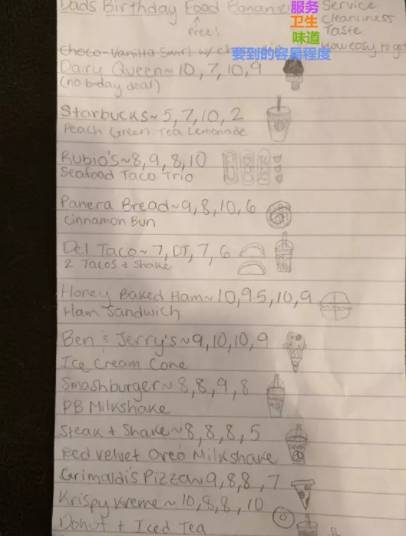 Dads Birthday Food Bananza
服务 Service
Free!
卫生 Cleanliness
味道 Taste
要到的容易程度 How easy to get
Choco-Vanilla Swirl w/
Dairy Queen~10,7,10,9
(no b-day deal)
Starbucks~5,7,10,2
Peach Green Tea Lemonade
Rubio's~8,9,8,10
Seafood Taco Trio
Panera Bread~9,8,10,6
Cinnamon Bun
Del Taco~7,DT,7,6
2 Tacos + Shake
Honey Baked Ham~10,9.5,10,9
Ham Sandwich
Ben & Jerry's~9,10,10,9
Ice Cream Cone
Smashburger~8,8,9,8
PB Milkshake
Steak + Shake~8,8,8,5
Red Velvet Oreo Milkshake
Grimaldi's Pizza~9,8,8,7
Krispy Kreme~10,8,8,10
Donut + Iced Tea